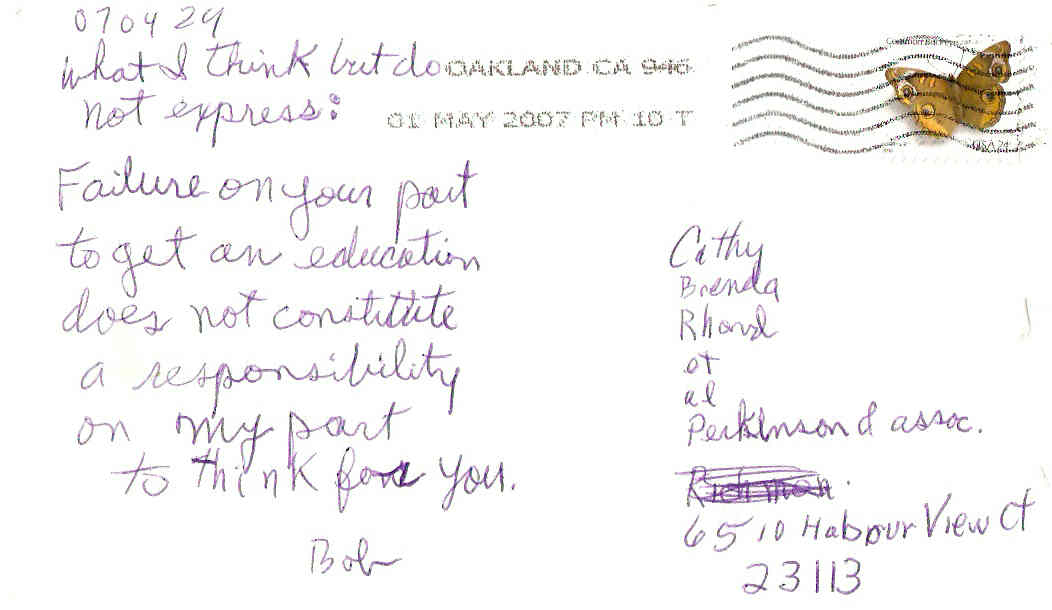 070429
what I think but do
not express:
OAKLAND CA 946
01 MAY 2007 PM 10 T
Failure on your part
to get an education
does not constitute
a responsibility
on my part
to think for you.
Bob
USA 24
Cathy
Brenda
et
al
& assoc.
6510 Habour View Ct
23113